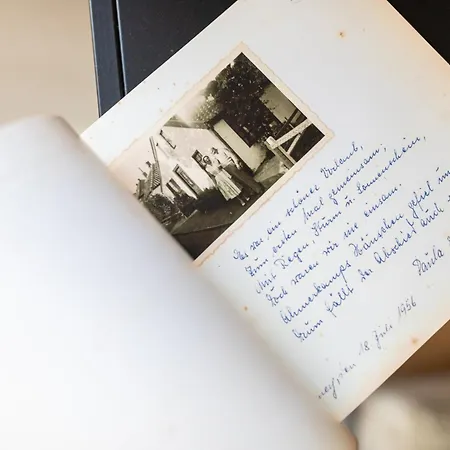 Das war ein schöner Urlaub,
Zum ersten Mal gemeinsam,
Mit Regen, Sturm u. Sonnenschein,
Doch waren wir nie einsam.
Ahnerkamps Häuschen gefiel
Drum fällt der Abschied auch
Paula
den 18 Juli 1956